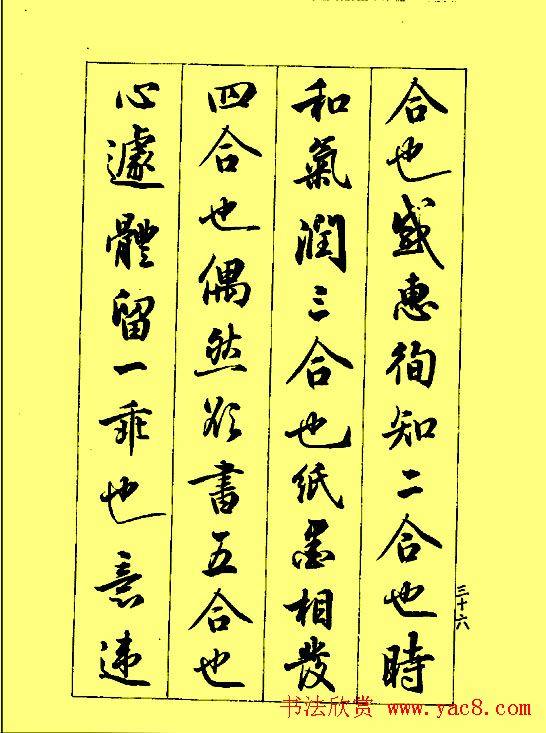 合也感惠徇知二合也時
和氣潤三合也紙墨相發
四合也偶然欲書五合也
心遽體留一乖也意違
三十六
书法欣赏 www.yac8.com